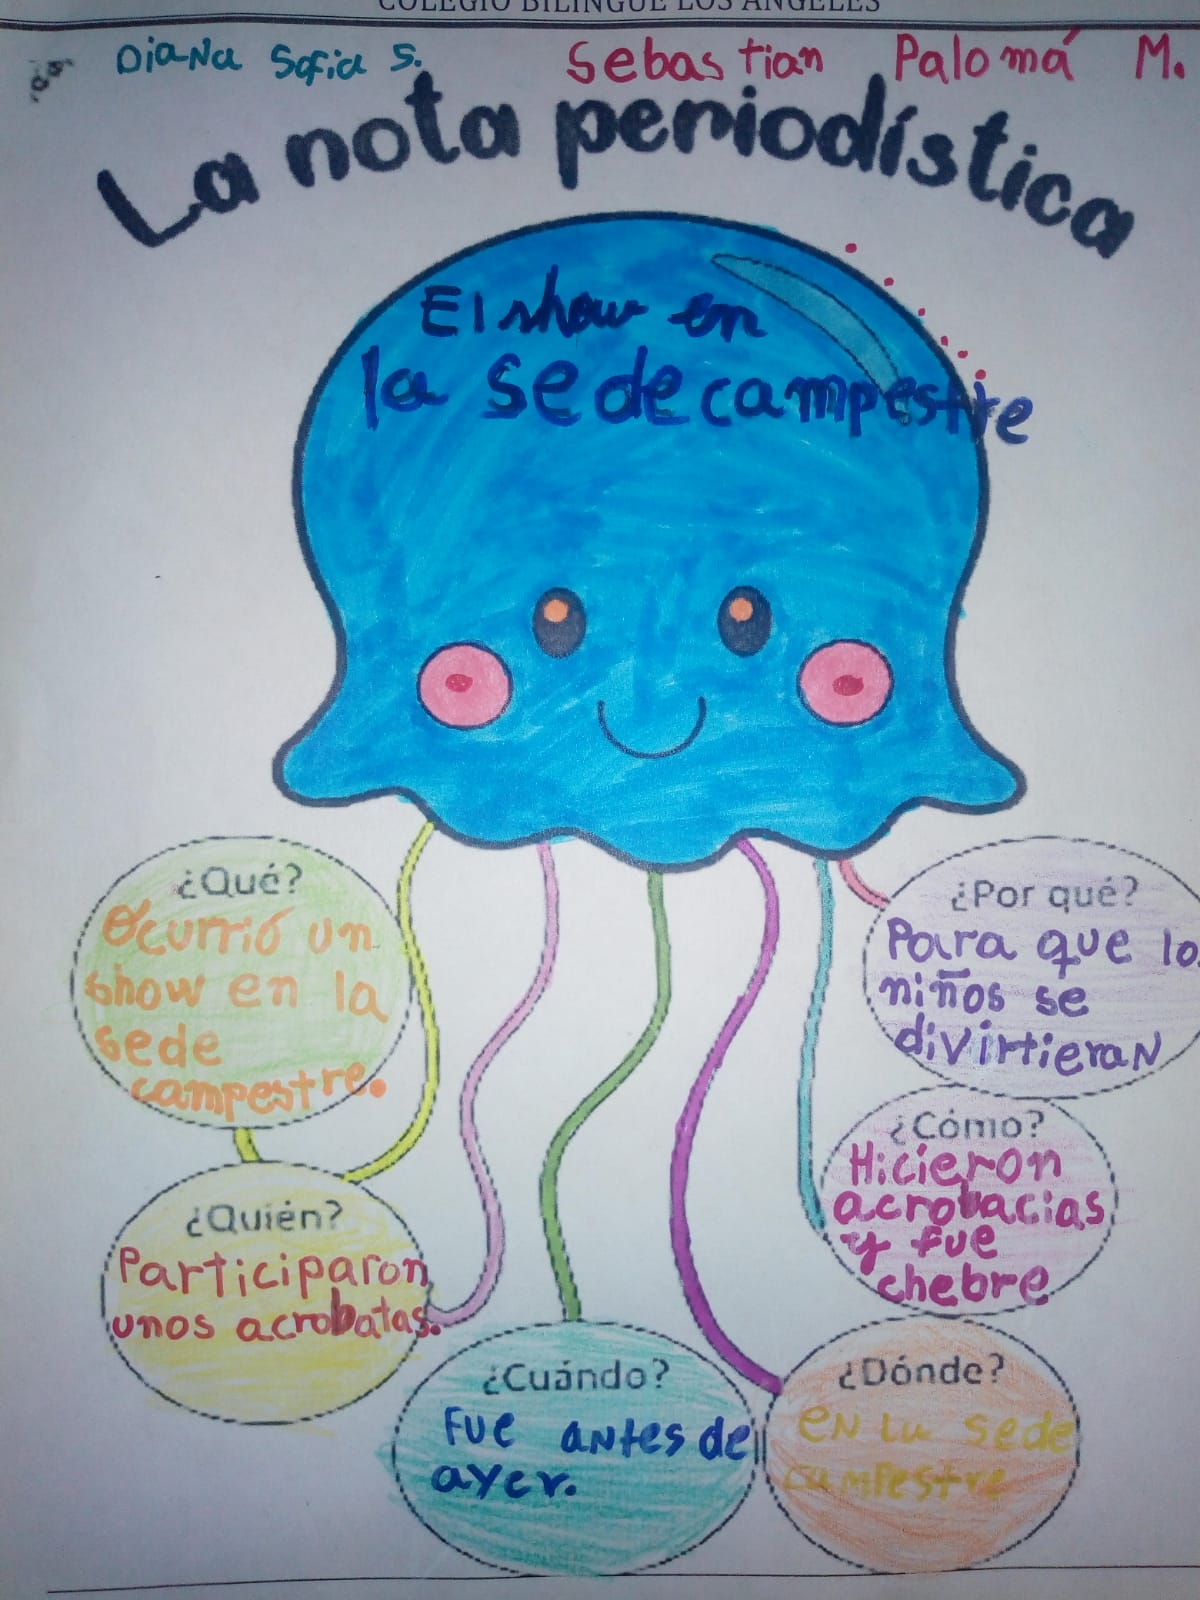 COLEGIO BILINGÜE LOS ÁNGELES
Diana Sofia S. Sebastian Palomá M.
La nota periodística
El show en
la sede campestre
¿Qué?
Ocurrió un
show en la
sede
campestre.
¿Quién?
Participaron
unos acrobatas.
¿Cuándo?
Fue antes de
ayer.
¿Dónde?
en la sede
campestre
¿Cómo?
Hicieron
acrobacias
y fue
chebre
¿Por qué?
Para que lo
niños se
divirtieran